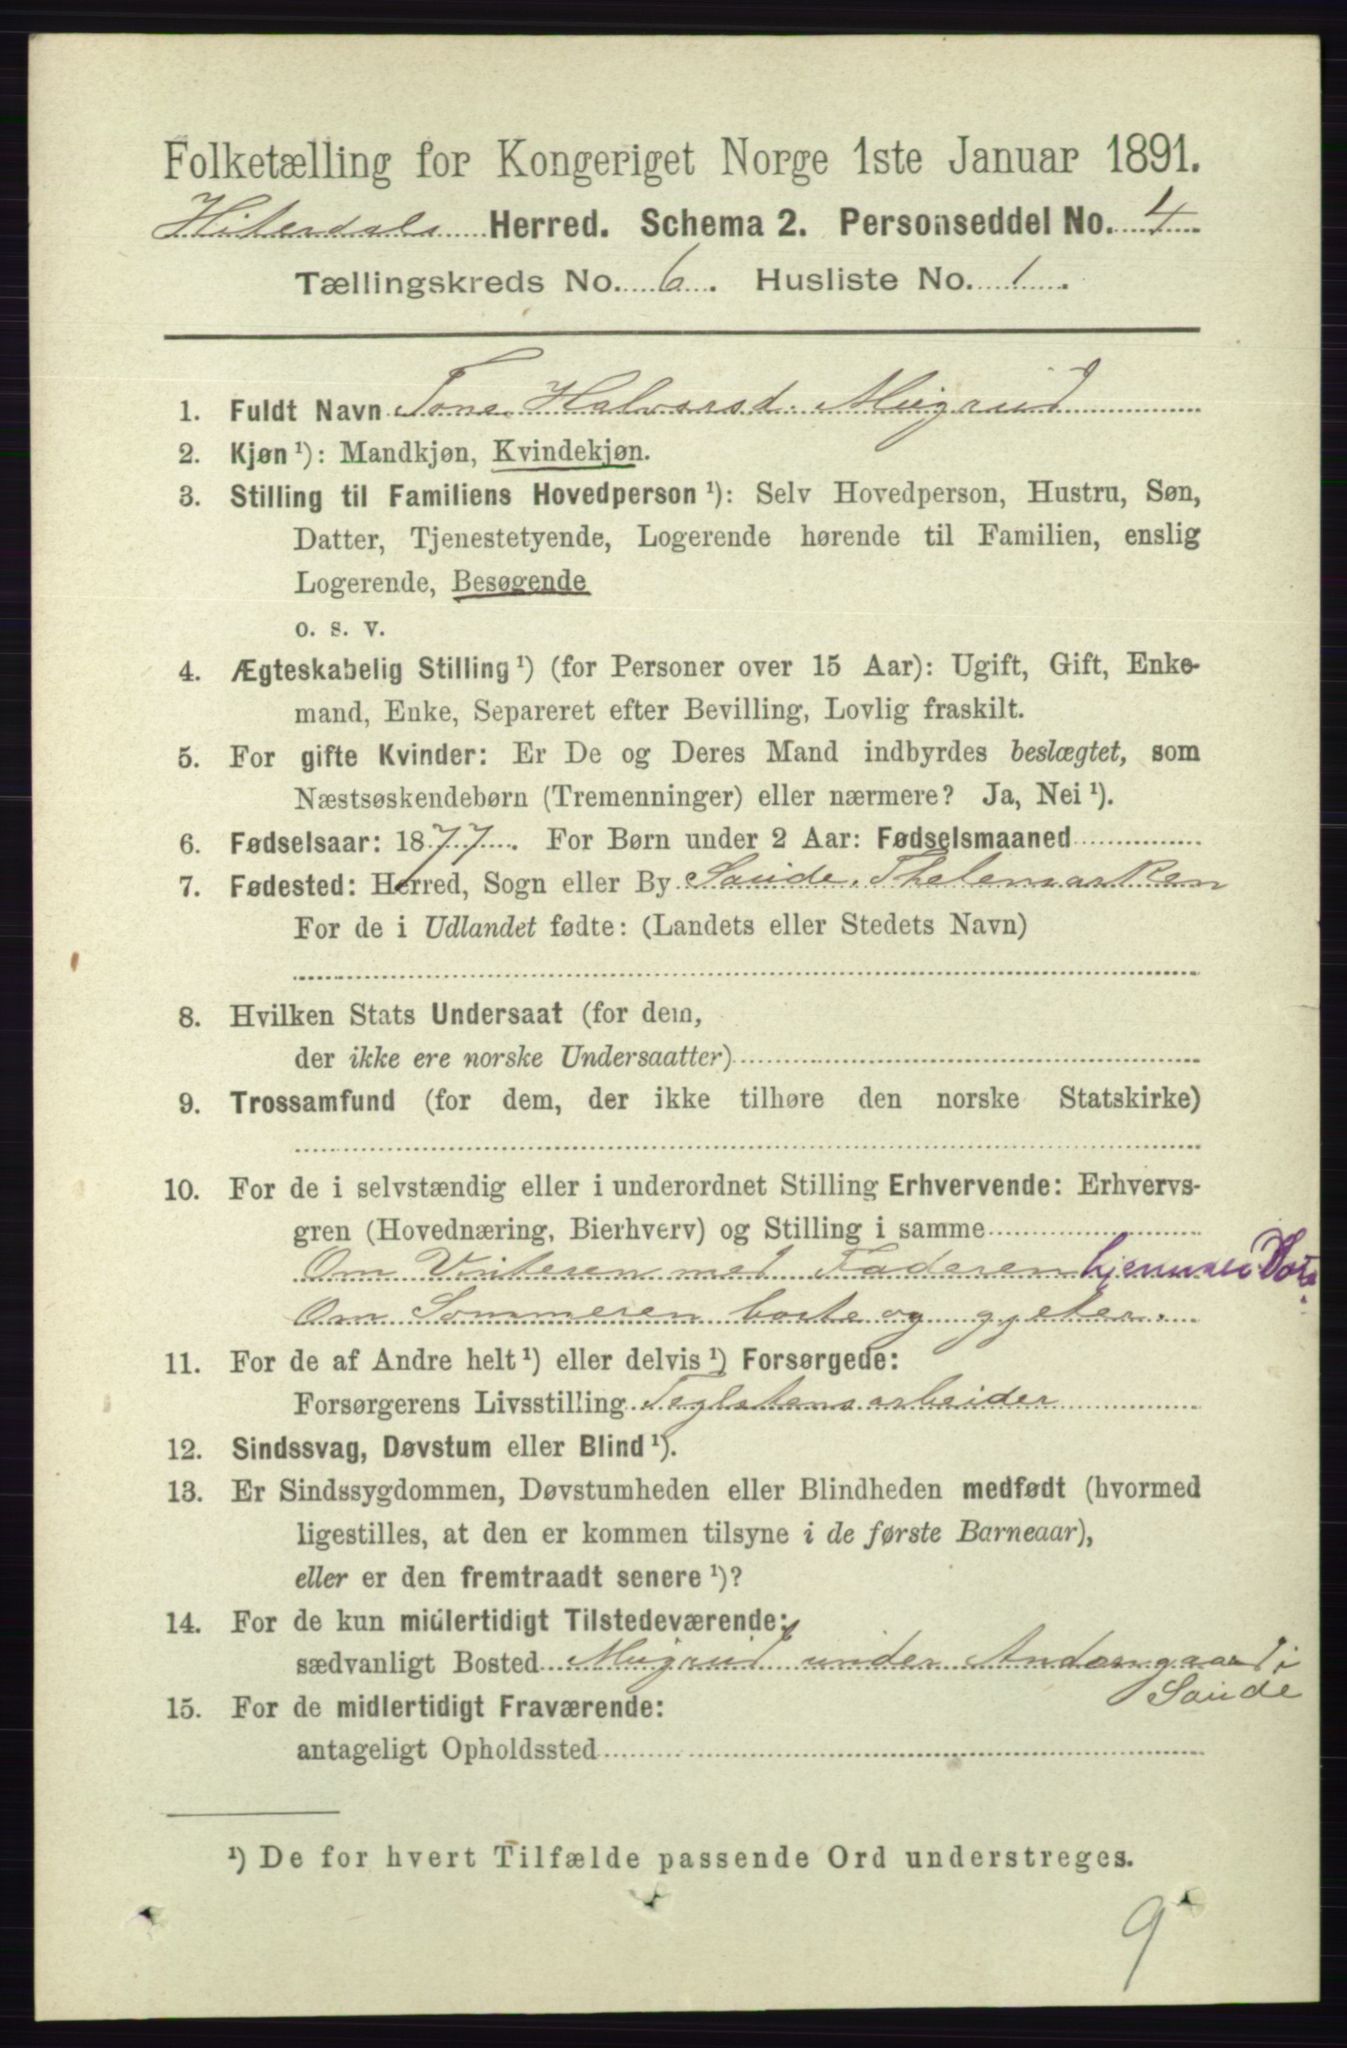 Folketælling for Kongeriget Norge 1ste Januar 1891.
Hiterdals Herred. Schema 2. Personseddel No. 4
Tællingskreds No. 6. Husliste No. 1.
1. Fuldt Navn Tone Halvorsd. Meigrud
2. Kjøn ¹): Mandkjøn, Kvindekjøn.
3. Stilling til Familiens Hovedperson ¹): Selv Hovedperson, Hustru, Søn,
Datter, Tjenestetyende, Logerende hørende til Familien, enslig
Logerende, Besøgende
o. s. v.
4. Ægteskabelig Stilling ¹) (for Personer over 15 Aar): Ugift, Gift, Enke-
mand, Enke, Separeret efter Bevilling, Lovlig fraskilt.
5. For gifte Kvinder: Er De og Deres Mand indbyrdes beslægtet, som
Næstsøskendebørn (Tremenninger) eller nærmere? Ja, Nei ¹).
6. Fødselsaar: 1877. For Børn under 2 Aar: Fødselsmaaned
7. Fødested: Herred, Sogn eller By Saude. Thelemarken
For de i Udlandet fødte: (Landets eller Stedets Navn)
8. Hvilken Stats Undersaat (for dem,
der ikke ere norske Undersaatter)
9. Trossamfund (for dem, der ikke tilhøre den norske Statskirke)
10. For de i selvstændig eller i underordnet Stilling Erhvervende: Erhvervs-
gren (Hovednæring, Bierhverv) og Stilling i samme
Om Vinteren med Faderen hjemme
Om Sommeren borte og gjeter.
11. For de af Andre helt ¹) eller delvis ¹) Forsørgede:
Forsørgerens Livsstilling Teglstensarbeider
12. Sindssvag, Døvstum eller Blind ¹).
13. Er Sindssygdommen, Døvstumheden eller Blindheden medfødt (hvormed
ligestilles, at den er kommen tilsyne i de første Barneaar),
eller er den fremtraadt senere ¹)?
14. For de kun midlertidigt Tilstedeværende:
sædvanligt Bosted Meigrud under Andersgaard i
Saude
15. For de midlertidigt Fraværende:
antageligt Opholdssted
¹) De for hvert Tilfælde passende Ord understreges.
9